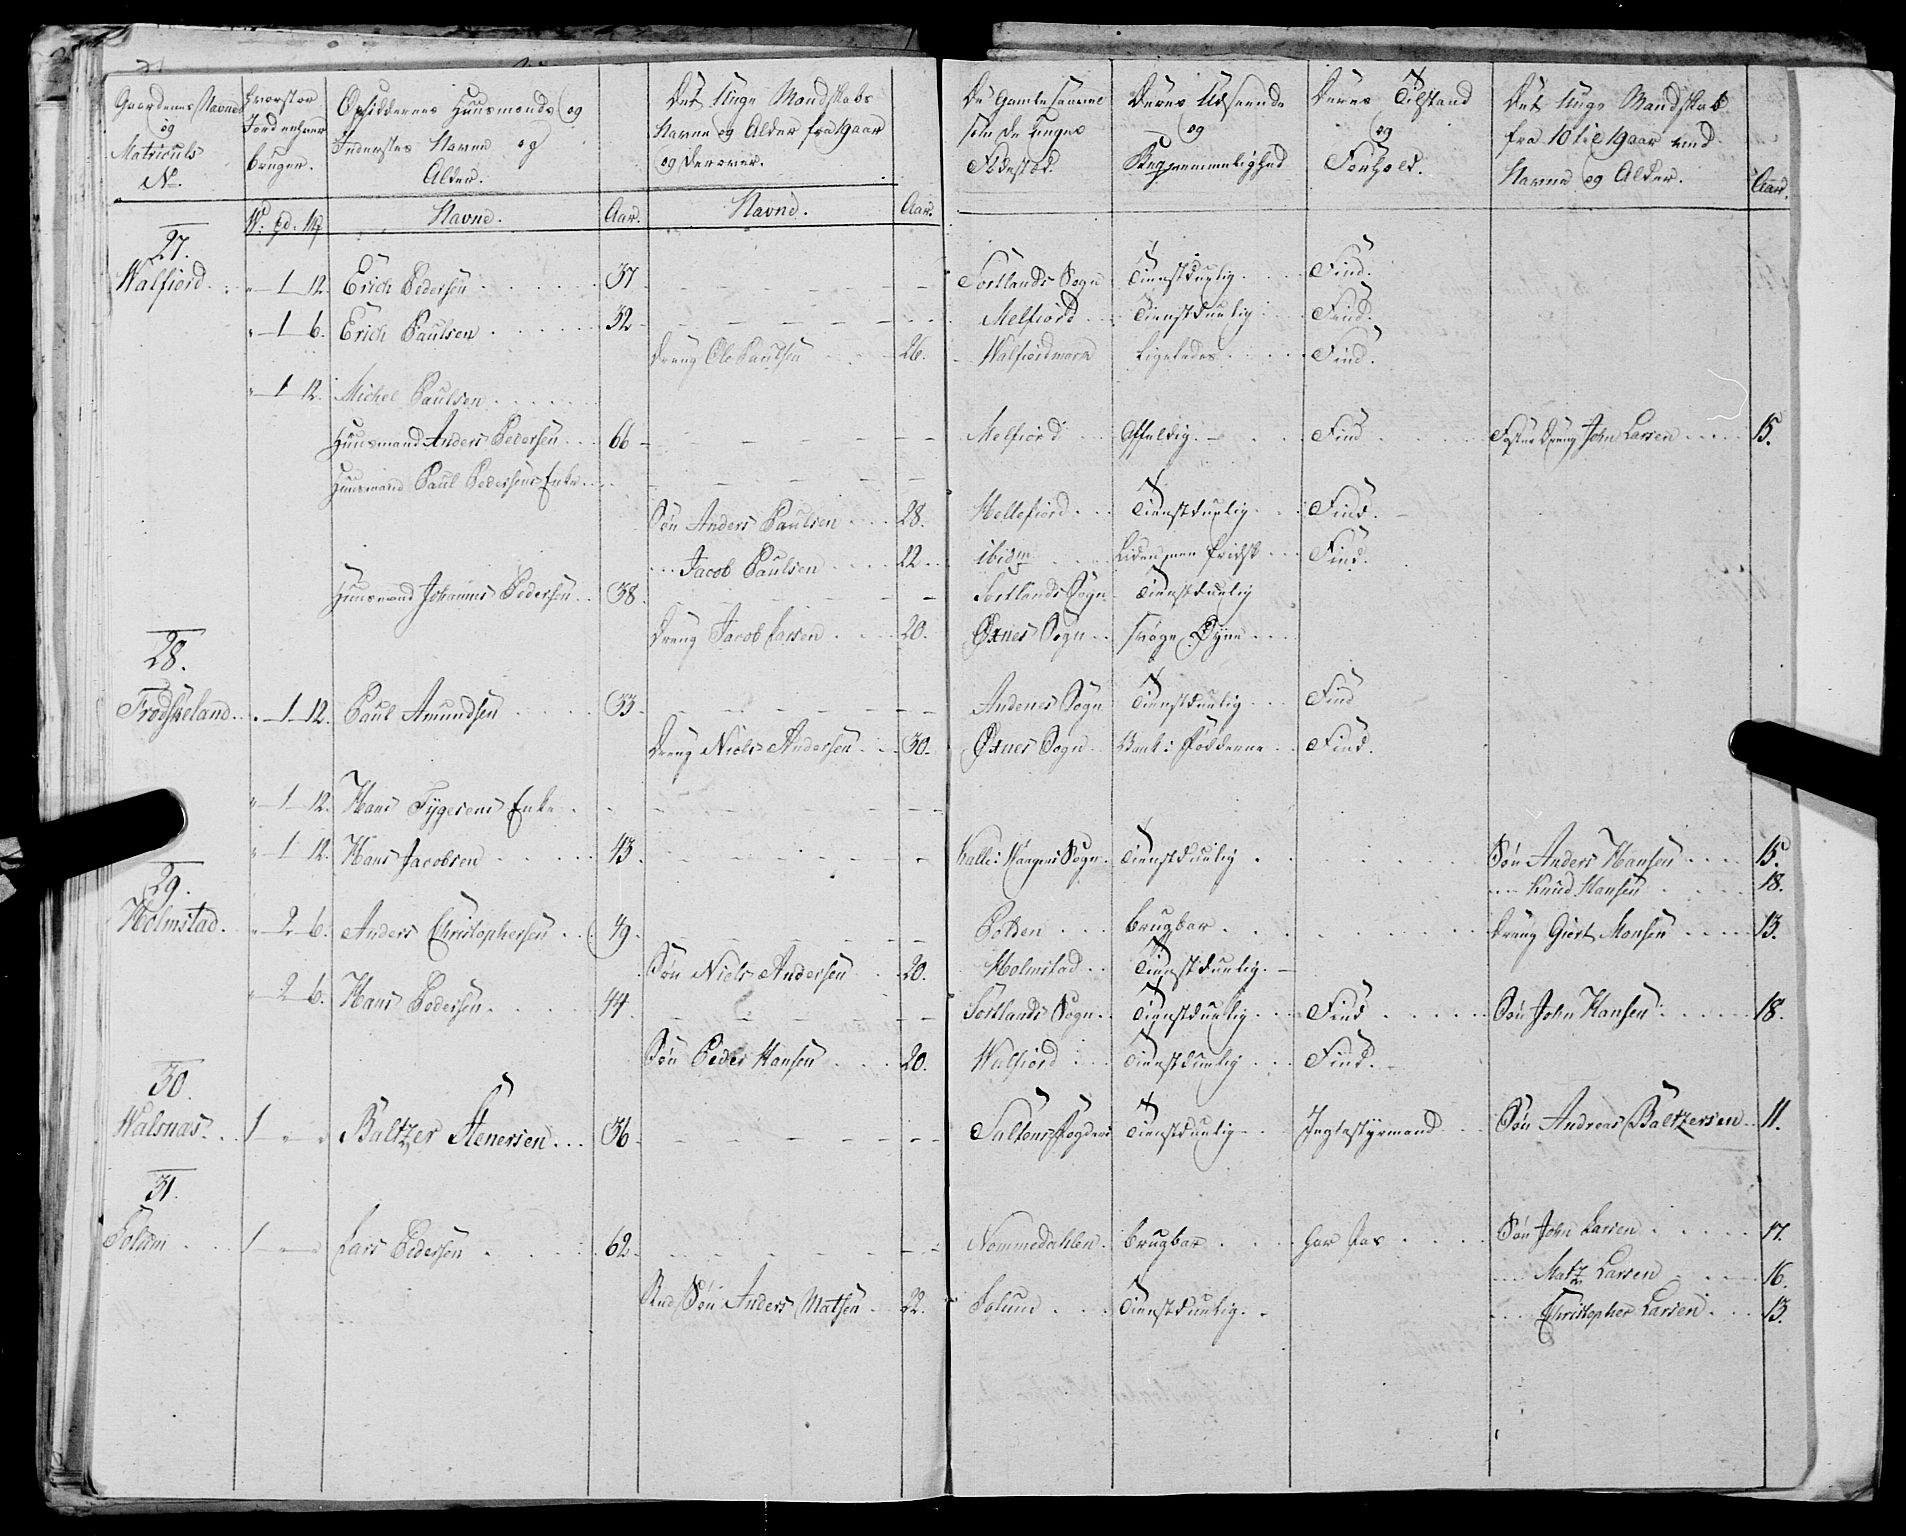 Gaardenes Navne og Matriculs No. | Hvorstor Jord enhver bruger. | Opsiddernes Huusmænds og Inderstes Navne og Alder. | Det Unge Mandskabs Navne og Alder fra 19 aar og derover. | De Gamle saavel som de Unges Fødested. | Deres Udseende og Beqvemmelighed | Deres Tilstand og Forhold. | Det Unge Mandskab fra 10 til 19 aar med Navne og Alder. | Aar.
W: pd. Mk | Navne. | Aar. | Navne. | Aar.
27.
Walfiord . . " 1 12. Erich Pedersen . . . 37 - - - Sortlands Sogn Tienstduelig . . . Find.
" 1 6. Erich Paulsen . . . 32 - - - Melfiord . . Tienstduelig . . Find.
Dreng Ole Paulsen . . 26. Walfiordmark Ligeledes . . . Find.
" 1 12. Michel Paulsen . . .
Huusmand Anders Pedersen . . 66 - - - Melfiord . . Affeldig. - . . Find . . . Foster Dreng John Larsen . . . 15.
Huusmand Paul Pedersens Enke . . - - -
Søn Anders Paulsen . . . 28. Hellefiord . . . Tienstduelig . . . Find. -
. . . Jacob Paulsen . . . 22 . . ibidm . . Liden, men fridsk . . . Find.
Huusmand Johannes Pedersen . . 38. - - - Sortlands Sogn Tienstduelig
Dreng Jacob Larsen . . . 20. Øxnes Sogn . . svage Øyne . . .
28.
Frødskeland . . " 1 12. Paul Amundsen . . . 33. - - - Andenes Sogn Tienstduelig . . . Find
Dreng Niels Andersen . . 30. Øxnes Sogn . . Vank i Fødderne . . Find.
" 1 12. Hans Tygesens Enke . . - - -
" 1 12. Hans Jacobsen . . . 43. - - - Kalle i Waagens Sogn . Tienstduelig . . . Søn Anders Hansen . . . 15.
. . . Knud Hansen . . . 18.
29.
Holmstad . " 2 6. Anders Christophersen . . 49. - - - Botten . . . brugbar . . . Dreng Giert Monsen . . . 13.
Søn Niels Andersen . . 20. Holmstad . . Tienstduelig. -
" 2 6. Hans Pedersen . . . 44. - - - Sortlands Sogn . . Tienstduelig . . . Find . . . Søn John Hansen . . . 18.
Søn Peder Hansen . . . 20. Walfiord . . . Tienstduelig . . . Find. -
30.
Walsnas . . 1 " " Baltzer Stenersen . . . 36 - - - Saltens Fogderi Tienstduelig . Jegtestyrmand . . Søn Andreas Baltzersen . . 11.
31.
Solum . . . 1 " " Lars Pedersen . . . 62. - - - Nommedahlen . brugbar . . . har Pas . . . Søn John Larsen . . . 17.
. . . Matz Larsen . . . 16.
Søn Anders Matsen . 22. Solum . . . Tienstduelig . - . . . Christopher Larsen . . . 13.